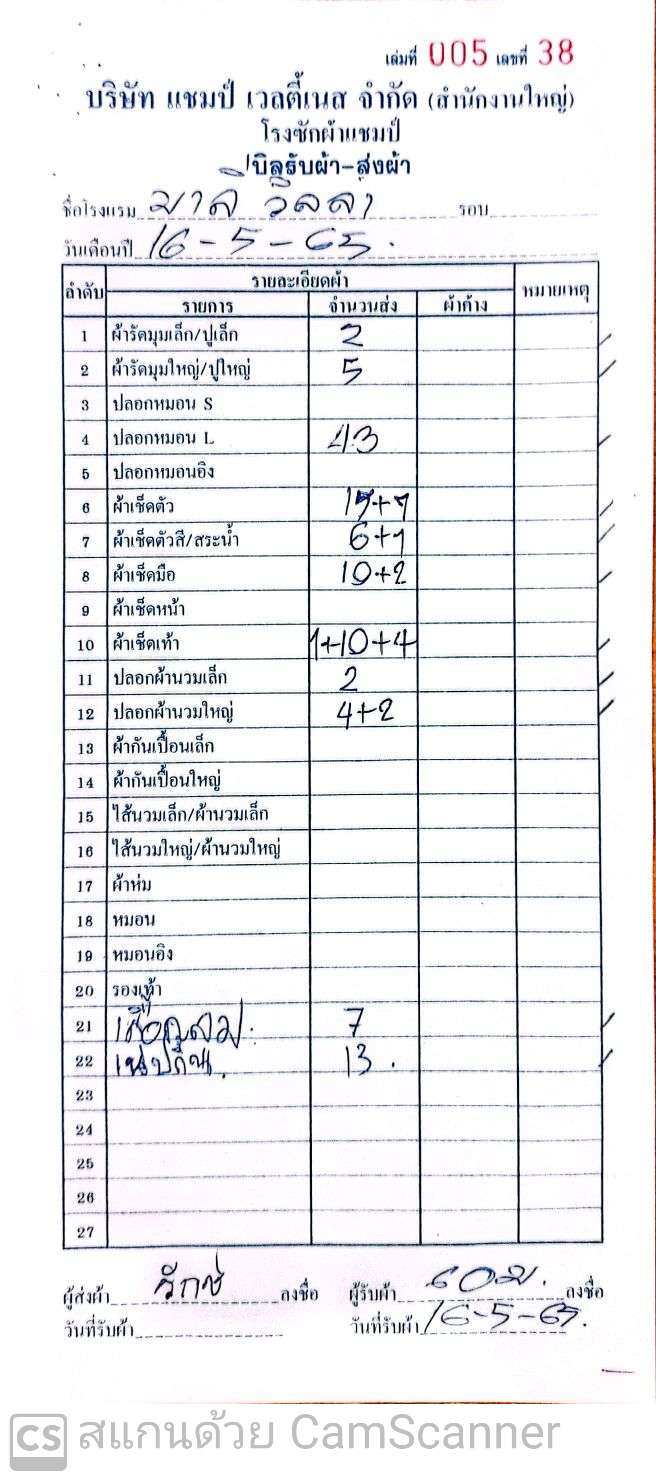 เล่มที่ 005 เลขที่ 38
บริษัท แชมป์ เวลตี้เนส จำกัด (สำนักงานใหญ่)
โรงซักผ้าแชมป์
บิลรับผ้า-ส่งผ้า
ชื่อโรงแรม มาลี วิลล่า รอบ
วันเดือนปี 16-5-65.
ลำดับ รายละเอียดผ้า หมายเหตุ
รายการ จำนวนส่ง ผ้าค้าง
1 ผ้ารัดมุมเล็ก/ปูเล็ก 2
2 ผ้ารัดมุมใหญ่/ปูใหญ่ 5
3 ปลอกหมอน S
4 ปลอกหมอน L 43
5 ปลอกหมอนอิง
6 ผ้าเช็ดตัว
7 ผ้าเช็ดตัวสี/สระน้ำ 6+1
8 ผ้าเช็ดมือ 10+2
9 ผ้าเช็ดหน้า
10 ผ้าเช็ดเท้า 1+10+4
11 ปลอกผ้านวมเล็ก 2
12 ปลอกผ้านวมใหญ่ 4+2
13 ผ้ากันเปื้อนเล็ก
14 ผ้ากันเปื้อนใหญ่
15 ไส้นวมเล็ก/ผ้านวมเล็ก
16 ไส้นวมใหญ่/ผ้านวมใหญ่
17 ผ้าห่ม
18 หมอน
19 หมอนอิง
20 รองเท้า
21 7
22 13.
23
24
25
26
27
ผู้ส่งผ้า ลงชื่อ ผู้รับผ้า ลงชื่อ
วันที่รับผ้า วันที่รับผ้า 16-5-65.
CS สแกนด้วย CamScanner